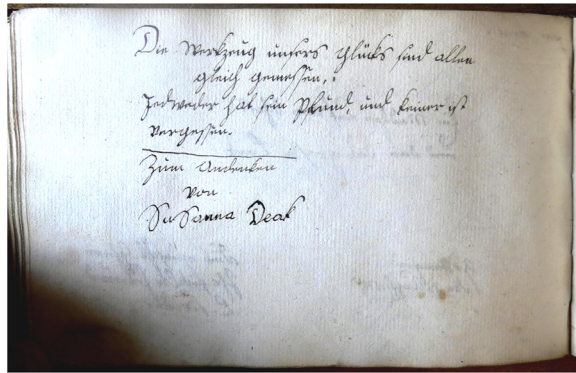 Die Werkzeug unsers Glücks sind allen
gleich gemessen,
Jedweder hat sein Pfund, und keiner ist
vergessen.
Zum Andenken
von
Susanna Deak